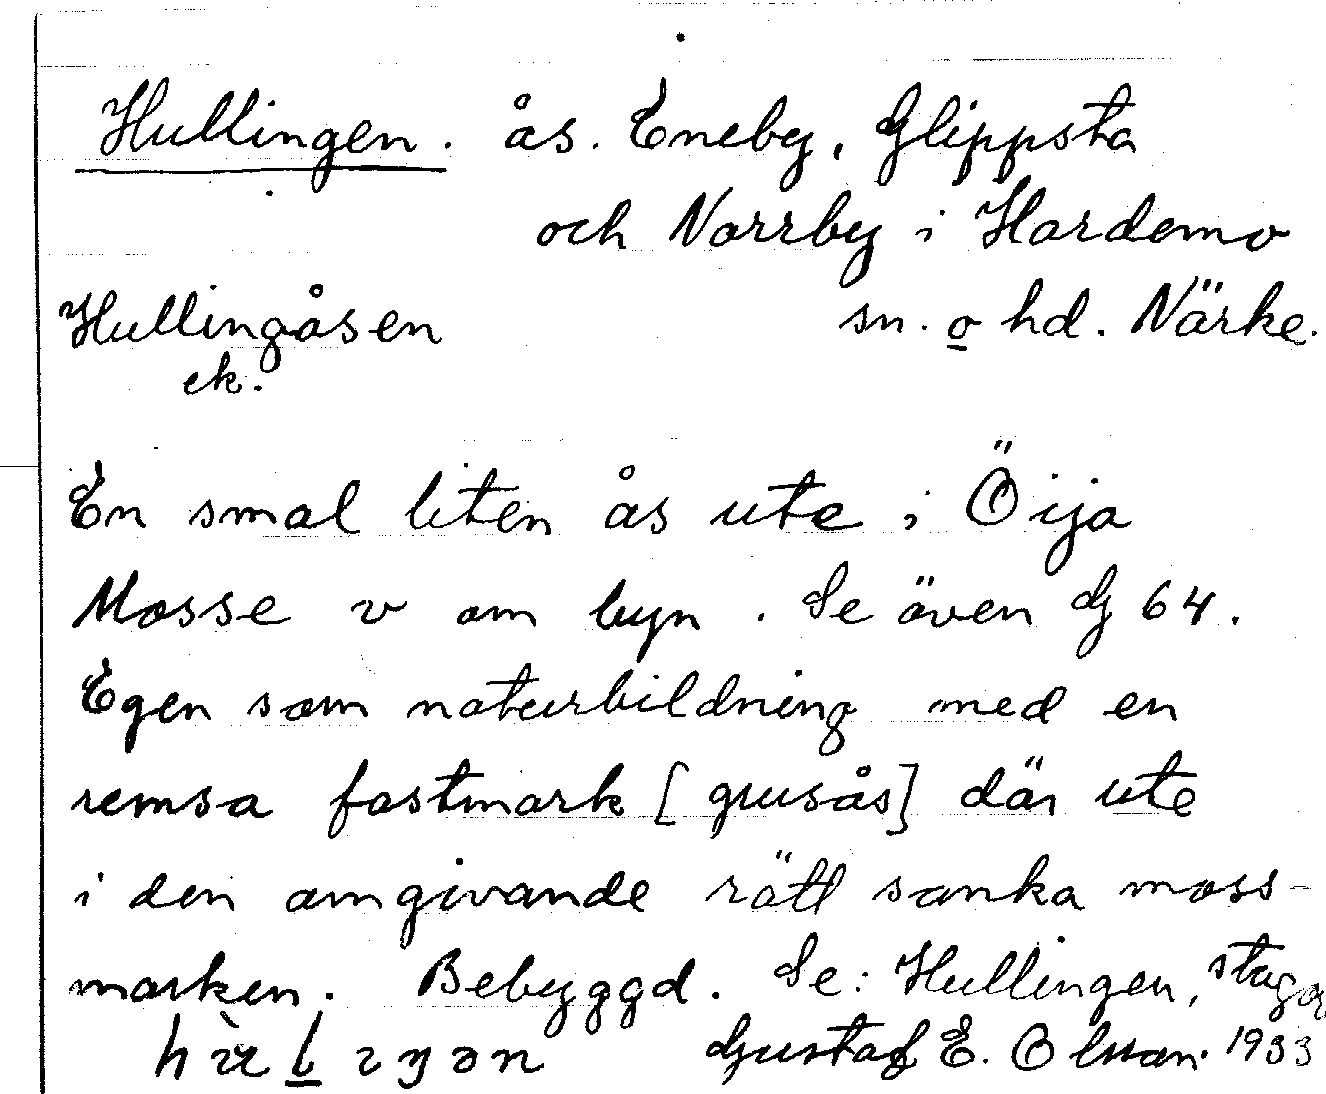 Hullingen. ås. Eneby, Glippsta
och Norrby i Hardemo
Hullingåsen sn. o hd. Närke.
ek.
En smal liten ås ute i Öija
Mosse v om byn. Se även G 64.
Egen som naturbildning med en
remsa fastmark [grusås] där ute
i den omgivande rätt sanka moss-
marken. Bebyggd. Se: Hullingen, stuga
Gustaf E. Olsson. 1933